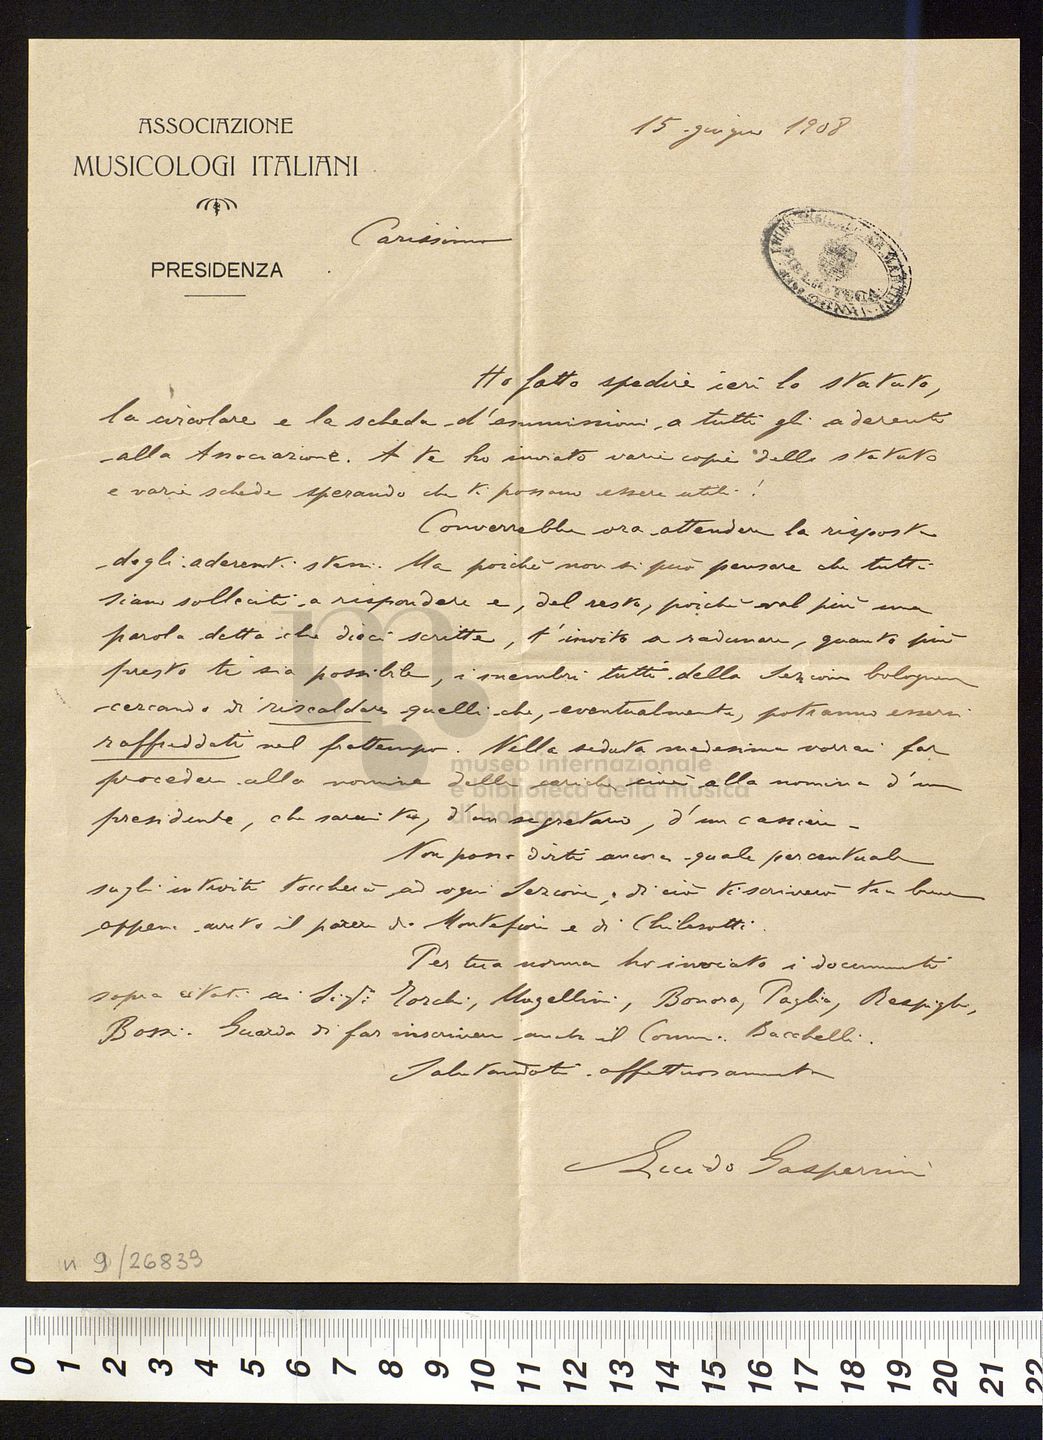 ASSOCIAZIONE
MUSICOLOGI ITALIANI
PRESIDENZA
15 giugno 1908
Carissimo
Ho fatto spedire ieri lo statuto,
la circolare e la scheda d'ammissione a tutti gli aderenti
alla Associazione. A te ho inviato varie copie dello statuto
e varie schede sperando che ti possano essere utili!
Converrebbe ora attendere la risposta
degli aderenti stessi. Ma poichè non si può pensare che tutti
siano solleciti a rispondere e, del resto, poichè val più una
parola detta che dieci scritte, t'invito a radunare, quanto più
presto ti sia possibile, i membri tutti della Sezione bolognese
cercando di riscaldare quelli che, eventualmente, potranno essersi
raffreddati nel frattempo. Nella seduta medesima vorrai far
procedere alla nomina delle cariche cioè alla nomina d'un
presidente, che sarai tu, d'un segretario, d'un cassiere.
Non posso dirti ancora quale percentuale
sugli introiti toccherà ad ogni Sezione; di ciò ti scriverò tra breve
appena avuto il parere di Montefiori e di Chilesotti.
Per tua norma ho inviato i documenti
sopra citati ai Sigi. Torchi, Mugellini, Bonora, Paglia, Respighi,
Bossi. Guarda di far inscrivere anche il Comm. Bacchelli.
Salutandoti affettuosamente
Guido Gasperini
BIBLIOTECA
museo internazionale
e biblioteca della musica
di bologna
n 9/26839
0 1 2 3 4 5 6 7 8 9 10 11 12 13 14 15 16 17 18 19 20 21 22